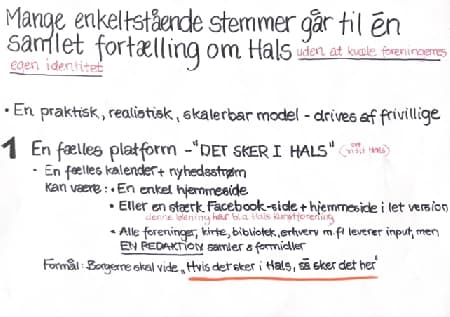 Mange enkeltstående stemmer går til én
samlet fortælling om Hals uden at kvæle foreningernes
egen identitet
• En praktisk, realistisk, skalerbar model - drives af frivillige
1 En fælles platform - "DET SKER I HALS" (
- En fælles kalender + nyhedsstrøm
Kan være: • En enkel hjemmeside
• Eller en stærk Facebook-side + hjemmeside i let version
denne løsning har bl.a Hals Kunstforening
• Alle foreninger, kirke, bibliotek, erhverv m.fl leverer input, men
EN REDAKTION samler & formidler
Formål: Borgerne skal vide „Hvis det sker i Hals, så sker det her"